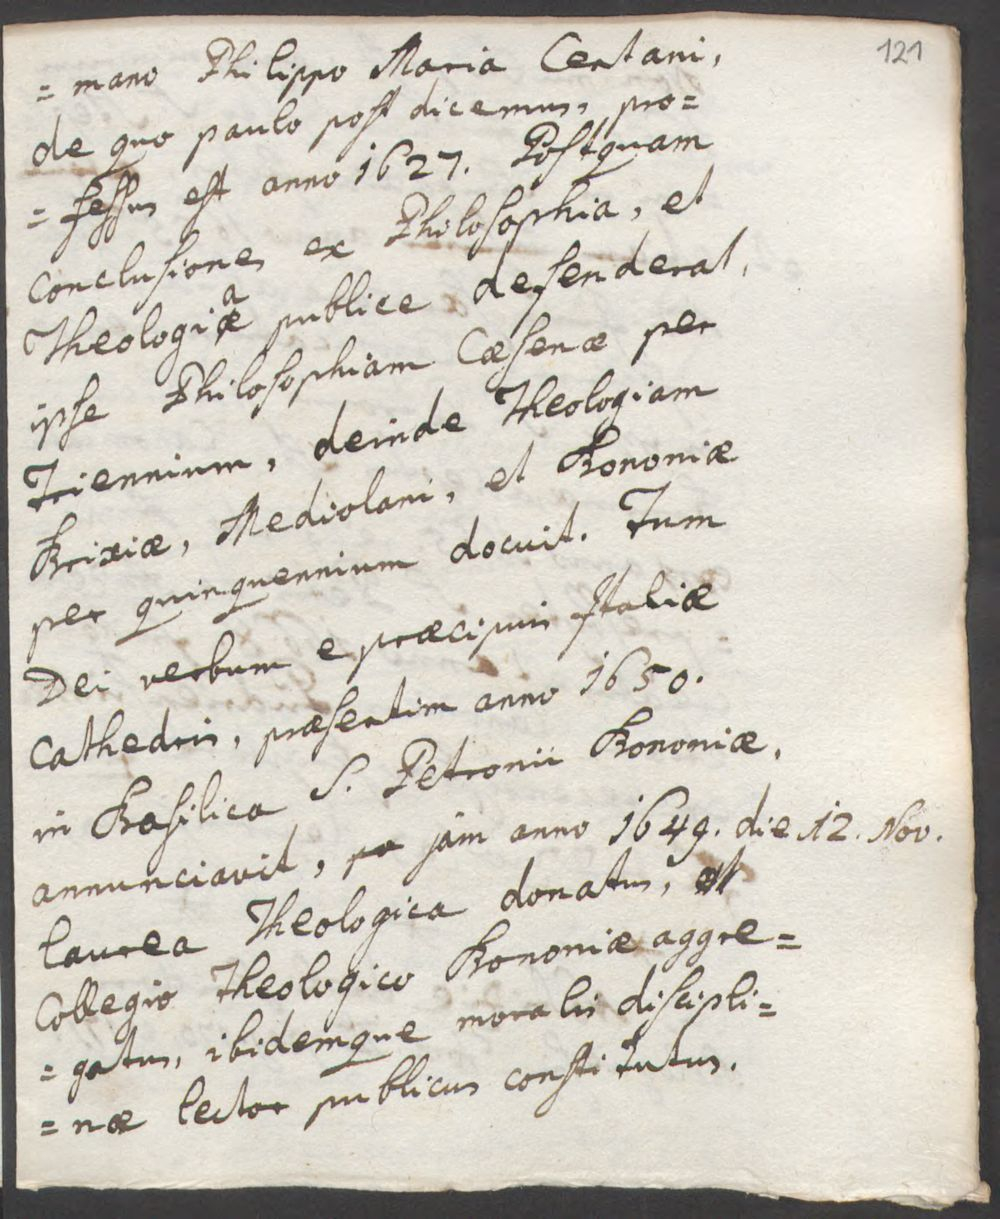 121
= mano Philippo Maria Certani,
de quo paulo post dicemus, pro=
= fessus est anno 1627. Postquam
conclusiones ex Philosophia, et
Theologiâ publice defenderat,
ipse Philosophiam Cæsenæ per
triennium, deinde Theologiam
Brixiæ, Mediolani, et Bononiæ
per quinquennium docuit. Tum
Dei verbum e præcipuis Italiæ
cathedris, præsertim anno 1650.
in Basilica S. Petronii Bononiæ,
annunciavit, jam anno 1649. die 12. Nov.
laurea Theologica donatus, et
Collegio Theologico Bononiæ aggre=
= gatus, ibidemque moralis discipli=
= næ lector publicus constitutus.